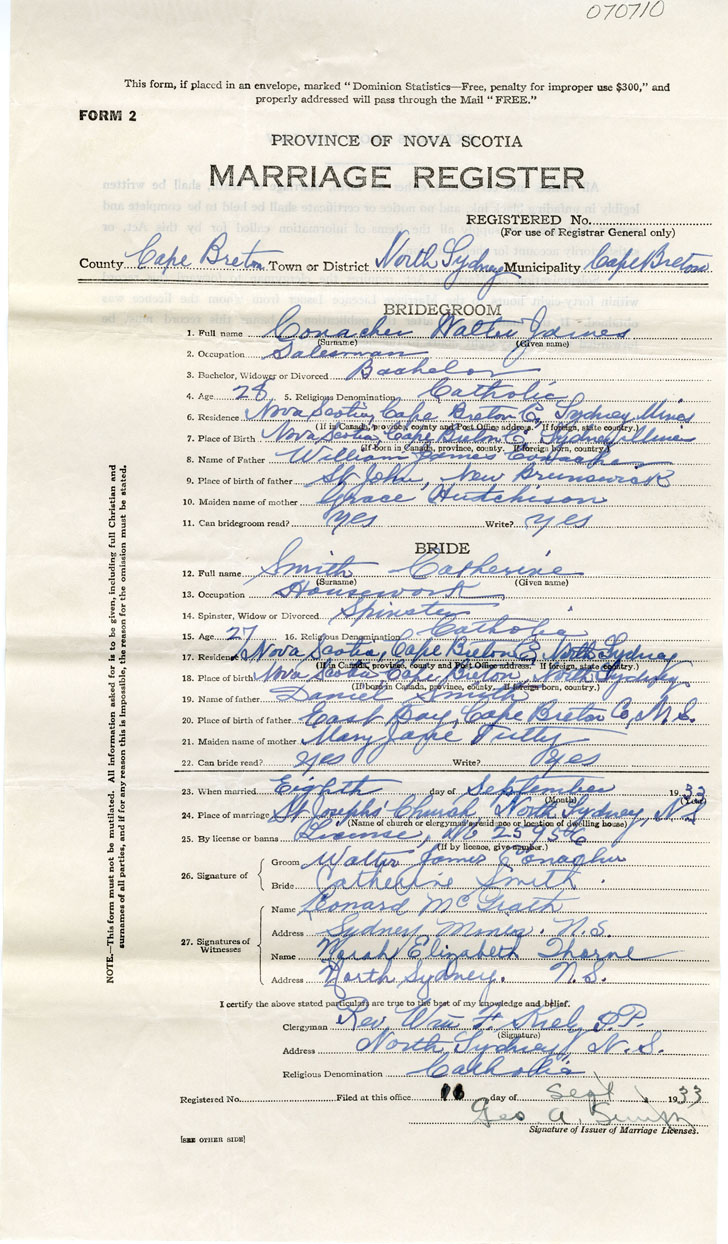 070710
This form, if placed in an envelope, marked "Dominion Statistics—Free, penalty for improper use $300," and
properly addressed will pass through the Mail "FREE."
FORM 2
PROVINCE OF NOVA SCOTIA
MARRIAGE REGISTER
REGISTERED No.
(For use of Registrar General only)
County Cape Breton Town or District North Sydney Municipality Cape Breton
BRIDEGROOM
1. Full name Conacher Walter James
(Surname) (Given name)
2. Occupation Salesman
3. Bachelor, Widower or Divorced Bachelor
4. Age 28 5. Religious Denomination Catholic
6. Residence Nova Scotia, Cape Breton C, Sydney Mines
(If in Canada, province, county and Post Office address. If foreign, state country.)
7. Place of Birth Nova Scotia, Cape Breton C, Sydney Mines
(If born in Canada, province, county. If foreign born, country.)
8. Name of Father William James
9. Place of birth of father St John, New Brunswick
10. Maiden name of mother Grace Hutchison
11. Can bridegroom read? yes Write? yes
BRIDE
12. Full name Smith Catherine
(Surname) (Given name)
13. Occupation Housework
14. Spinster, Widow or Divorced Spinster
15. Age 27 16. Religious Denomination Catholic
17. Residence Nova Scotia, Cape Breton C, North Sydney
(If in Canada, province, county and Post Office address. If foreign, state country.)
18. Place of birth Nova Scotia Cape Breton, North Sydney
(If born in Canada, province, county. If foreign born, country.)
19. Name of father Daniel Smith
20. Place of birth of father East Bay, Cape Breton Co, N.S.
21. Maiden name of mother Mary Jane
22. Can bride read? yes Write? yes
23. When married Eighth day of September 1933
(Month) (Year)
24. Place of marriage St Josephs Church, North Sydney, N.S.
(Name of church or clergyman's residence or location of dwelling house)
25. By license or banns License, No 259546
(If by licence, give number.)
26. Signature of
Groom Walter James Conacher
Bride Catherine Smith.
27. Signatures of Witnesses
Name Leonard McGrath
Address Sydney Mines. N.S.
Name Norah Elizabeth Thorne
Address North Sydney. N.S.
I certify the above stated particulars are true to the best of my knowledge and belief.
Clergyman Rev. Wm F. P.P.
(Signature)
Address North Sydney, N.S.
Religious Denomination Catholic
Registered No. Filed at this office 16 day of Sept 1933
Geo A. Smith
Signature of Issuer of Marriage Licenses.
[SEE OTHER SIDE]
NOTE.—This form must not be mutilated. All information asked for is to be given, including full Christian and
surnames of all parties, and if for any reason this is impossible, the reason for the omission must be stated.